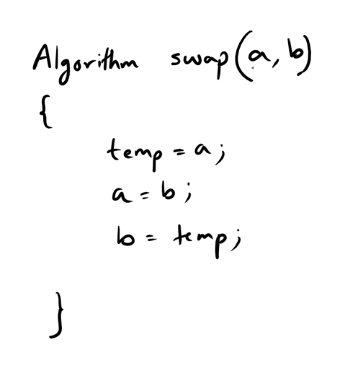 Algorithm swap(a, b)
{
temp = a;
a = b;
b = temp;
}